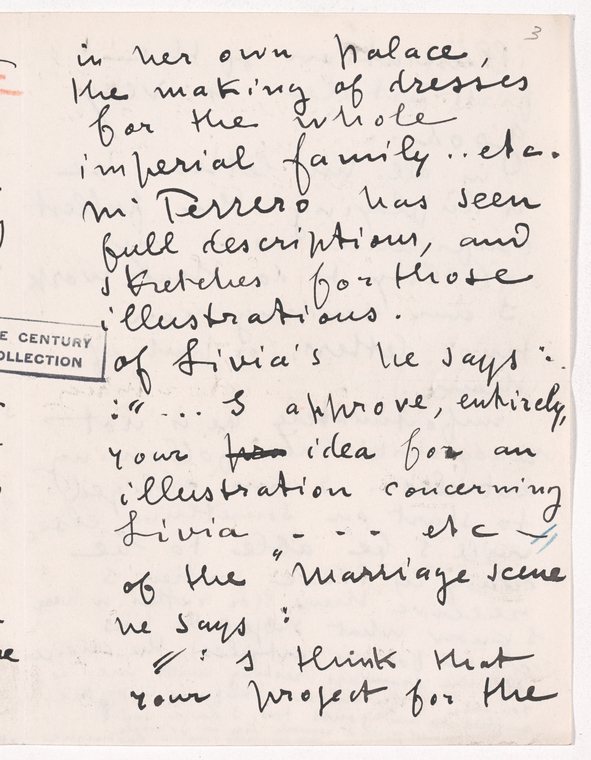 3
in her own palace,
the making of dresses
for the whole
imperial family .. etc.
Mr Ferrero has seen
full descriptions, and
sketches for those
illustrations.
E CENTURY
OLLECTION
of Livia's he says :
:" ... I approve, entirely,
your idea for an
illustration concerning
Livia - - - - etc —"
of the "Marriage scene
he says :
" : I think that
your project for the